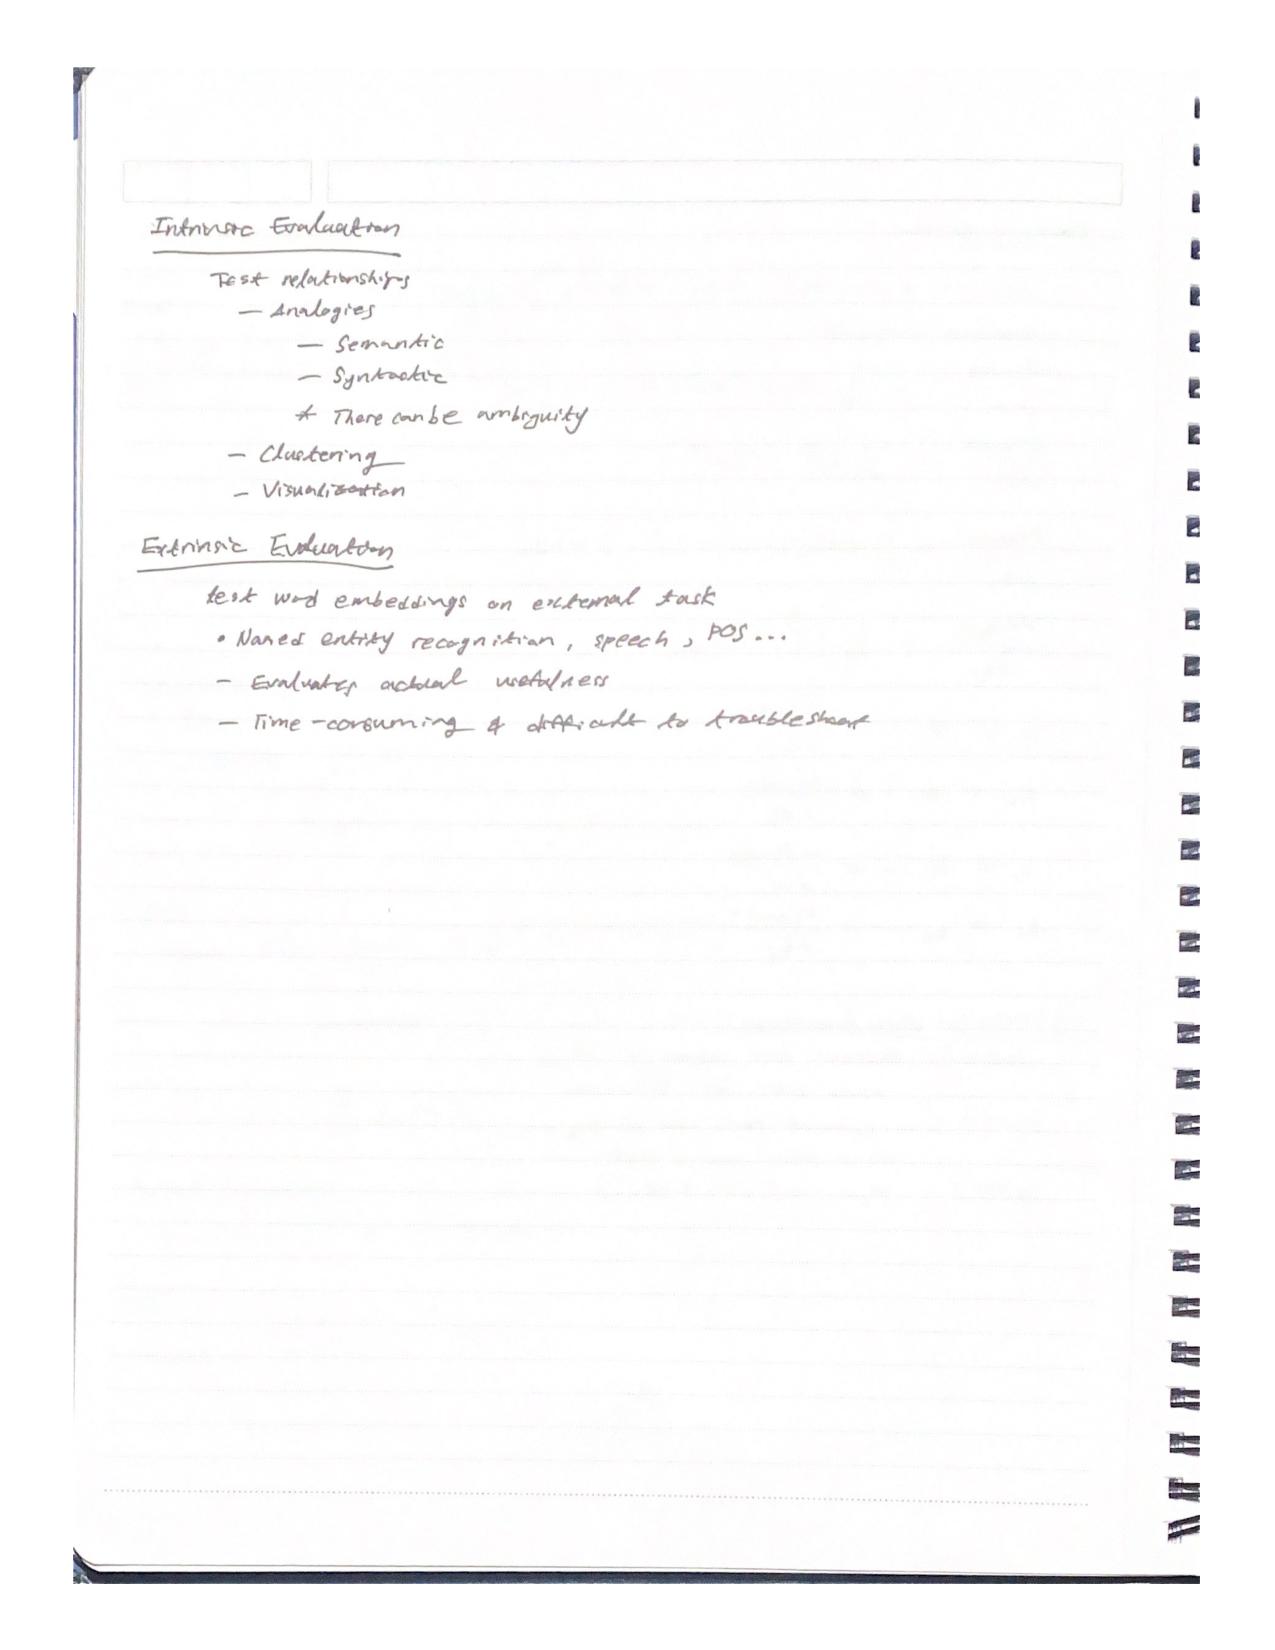 Intrinsic Evaluation
Test relationships
— Analogies
— Semantic
— Syntactic
* There can be ambiguity
— Clustering
— Visualization
Extrinsic Evaluation
test word embeddings on external task
• Named entity recognition, speech, POS...
— Evaluates actual usefulness
— Time-consuming & difficult to troubleshoot